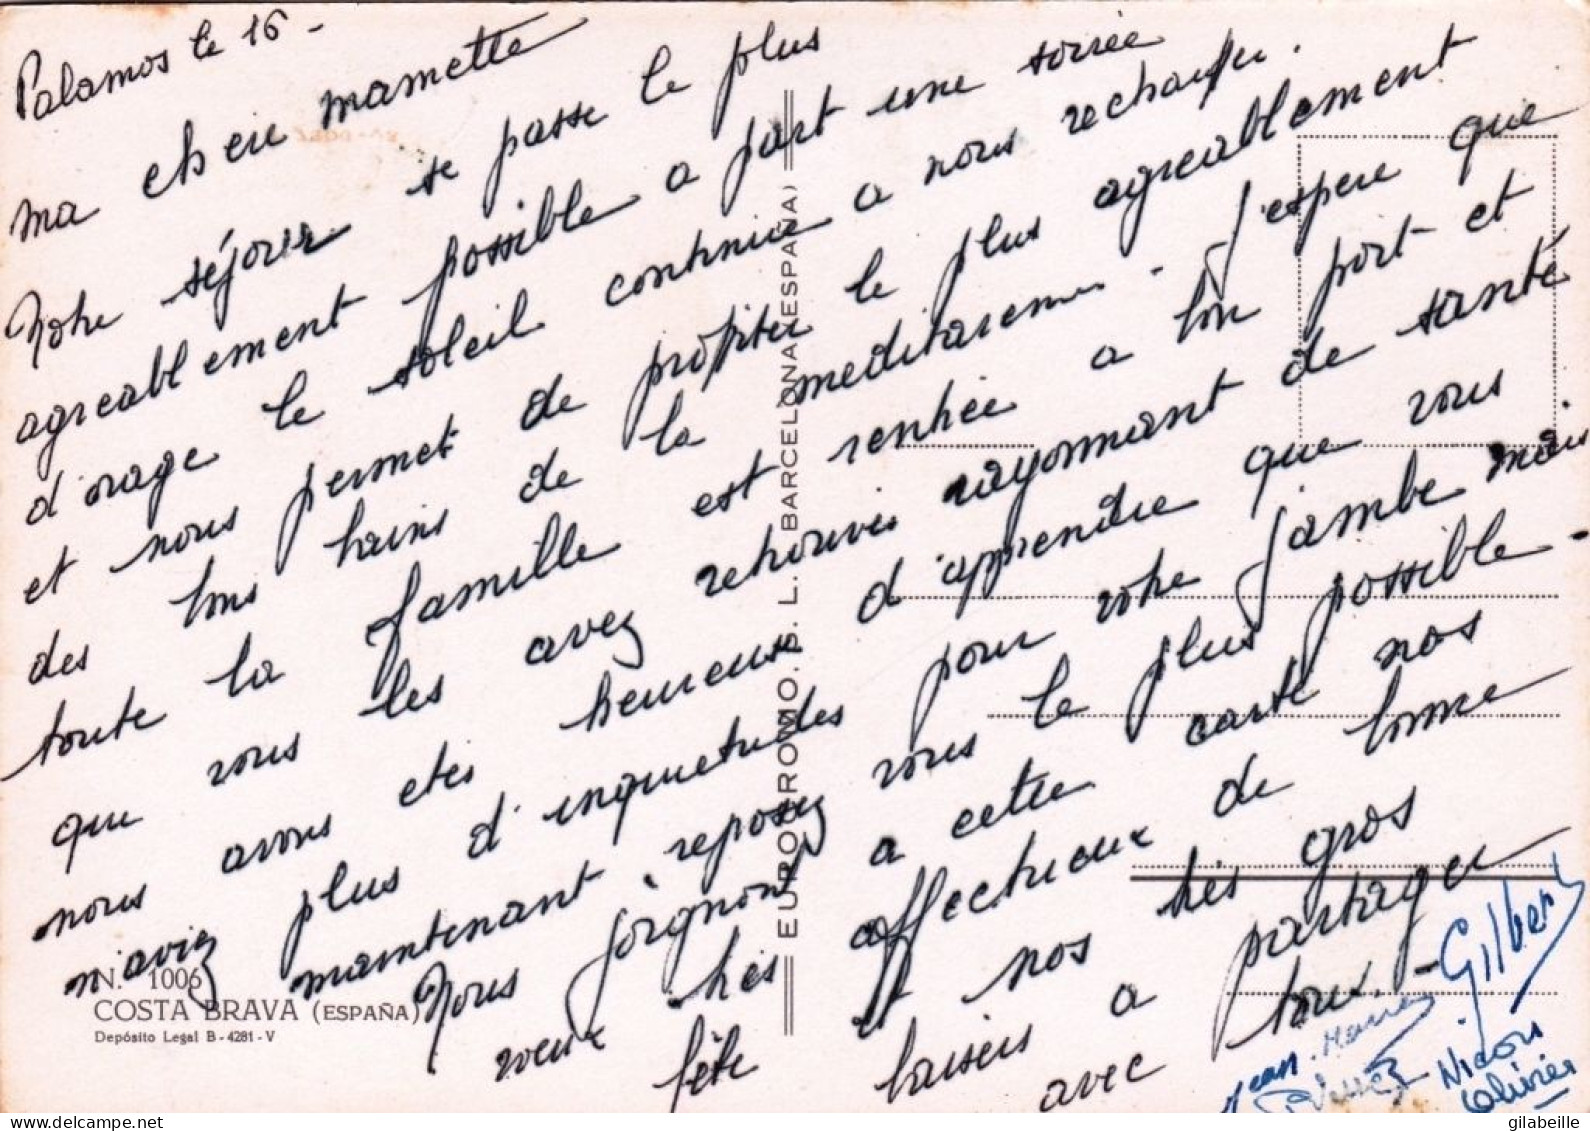 Palamos le 16 -
ma cheu mamette
Notre séjour se passe le plus
agreablement possible a part une soirée
d'orage le soleil continue a nous rechauffer.
et nous permet de profiter le plus agreablement
des bons bains de la meditaranee - J'espere que
toute la famille est rentrée a bon port et
que vous les avez retrouvés rayonnant de santé
nous avons etés heureuse d'apprendre que vous
n'aviez plus d'inquietudes pour votre jambe mais
maintenant reposez vous le plus possible -
Nous joignons a cette carte nos
voeux très affectueux de bonne
fête et nos très gros
baisers a partager
avec tous. -
Gilbert
Jean-Marie
Nicois
Olivier
N. 1006
COSTA BRAVA (ESPAÑA)
Depósito Legal B-4281-V
EUROCROMO. P. L. BARCELONA (ESPAÑA)
delcampe.net
gilabeille